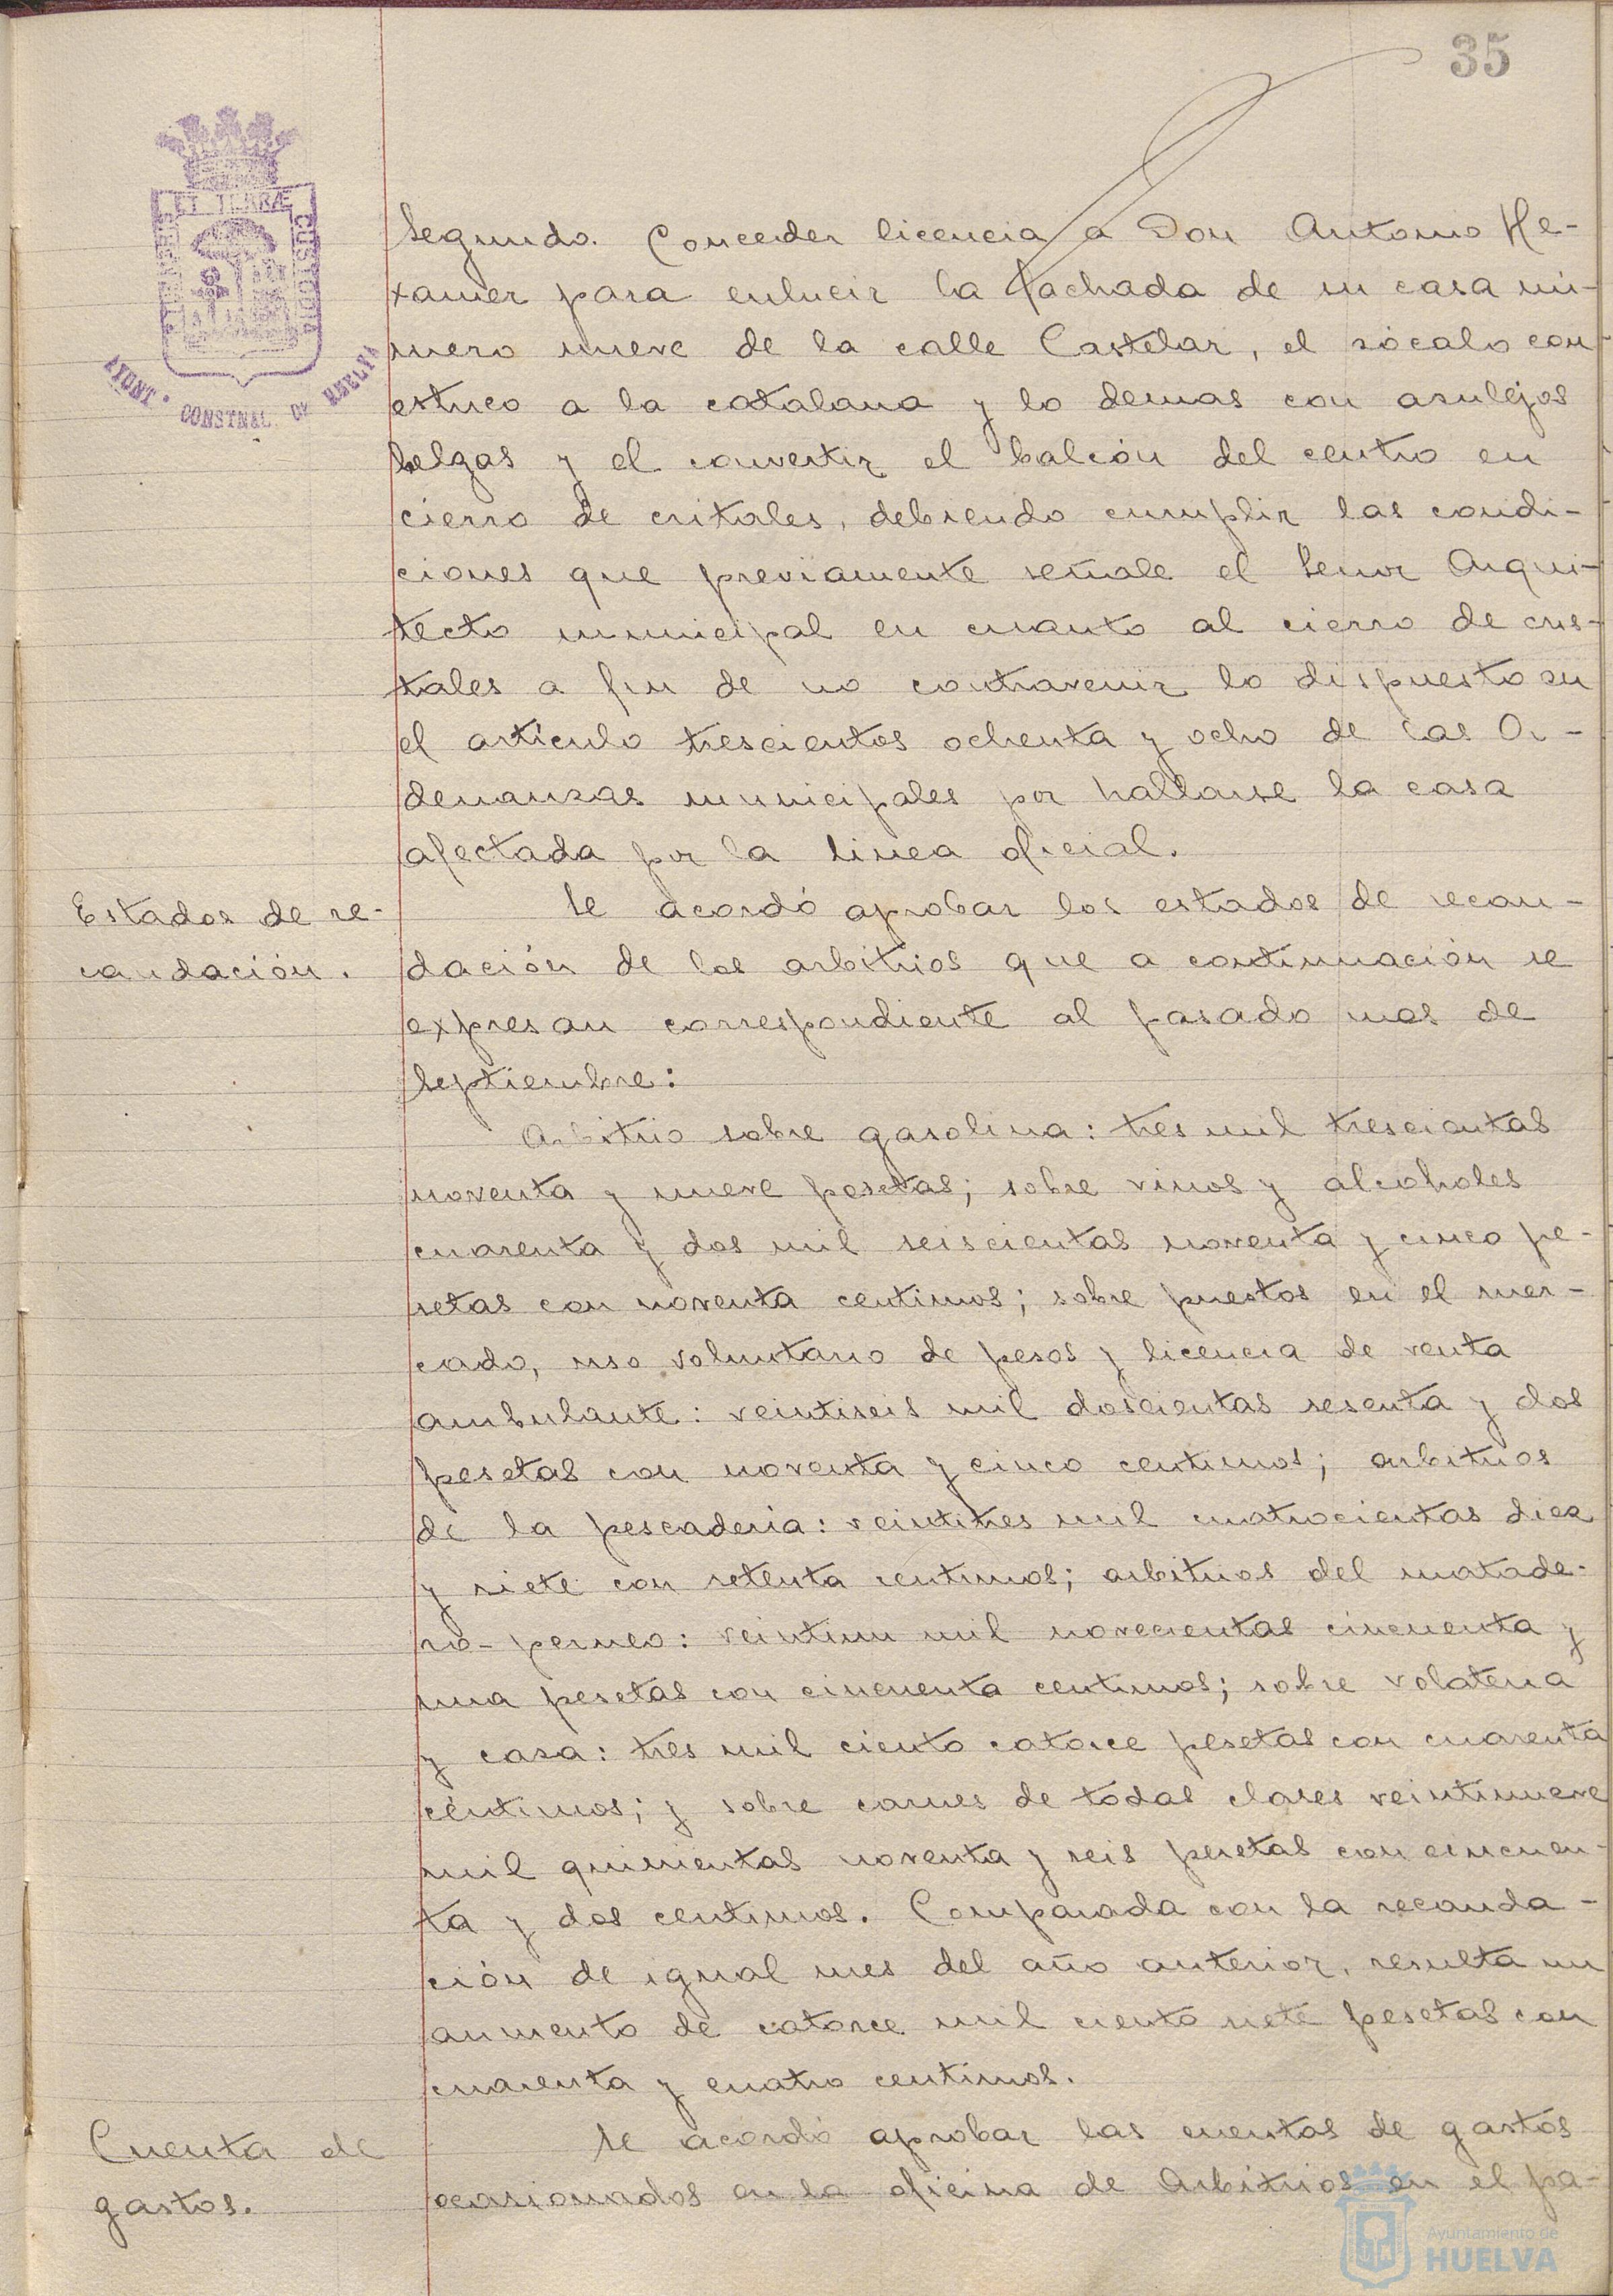 35
PORTUS MARIS
ET TERRÆ
CUSTODIA
AYUNT. CONSTNAL. DE HUELVA
Segundo. Conceder licencia a Don Antonio He-
xamer para enlucir la fachada de su casa nú-
mero nueve de la calle Castelar, el sócalo con
estuco a la catalana y lo demas con asulejos
belgas y el convertir el balcón del centro en
cierro de critales, debiendo cumplir las condi-
ciones que previamente señale el Señor Arqui-
tecto municipal en cuanto al cierro de cris-
tales a fin de no contravenir lo dispuesto en
el artículo trescientos ochenta y ocho de las Or-
denanzas municipales por hallarse la casa
afectada por la linea oficial.
Estados de re-
caudación.
Se acordó aprobar los estados de recau-
dación de los arbitrios que a continuación se
expresan correspondiente al pasado mes de
Septiembre:
Arbitrio sobre gasolina: tres mil trescientas
noventa y nueve pesetas; sobre vinos y alcoholes
cuarenta y dos mil seiscientas noventa y cinco pe-
setas con noventa centimos; sobre puestos en el mer-
cado, uso voluntario de pesos y licencia de venta
ambulante: veintiseis mil doscientas sesenta y dos
pesetas con noventa y cinco centimos; arbitrios
de la pescadería: veintitres mil cuatrocientas diez
y siete con setenta centimos; arbitrios del matade-
ro-perneo: veintiun mil novecientas cincuenta y
una pesetas con cincuenta centimos; sobre volateria
y caza: tres mil ciento catorce pesetas con cuarenta
céntimos; y sobre carnes de todas clases veintinueve
mil quinientas noventa y seis pesetas con cincuen-
ta y dos centimos. Comparada con la recauda-
ción de igual mes del año anterior, resulta un
aumento de catorce mil ciento siete pesetas con
cuarenta y cuatro centimos.
Cuenta de
gastos.
Se acordó aprobar las cuentas de gastos
ocasionados en la oficina de Arbitrios en el pa-
Ayuntamiento de
HUELVA